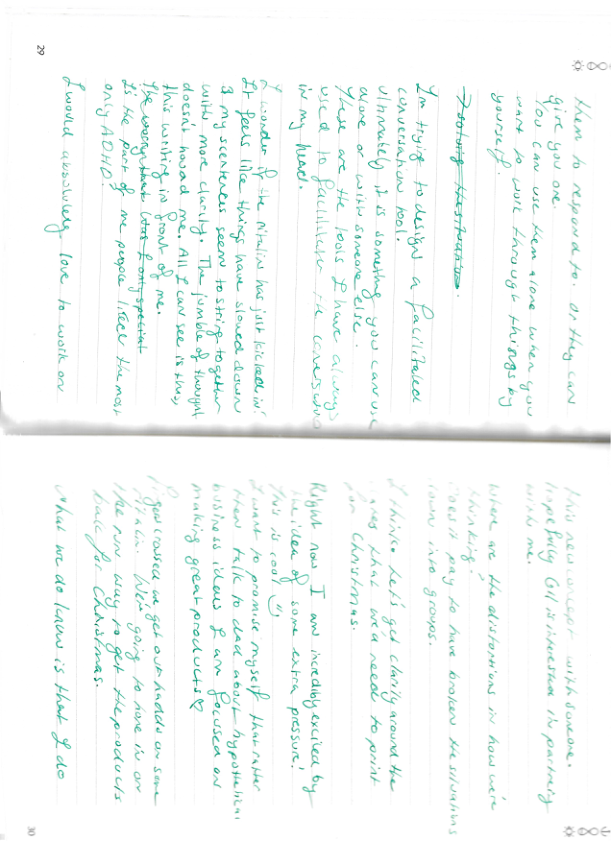 them to respond to. Or they can
give you one.
You can use them alone when you
want to work through things by
yourself.
I'm trying to design a facilitated
conversation tool.
Ultimately it is something you can use
alone or with someone else.
These are the tools I have always
used to facilitate the
in my head.
I wonder if the Ritalin has just kicked in?
It feels like things have slowed down
& my sentences seem to string together
with more clarity. The jumble of thought
doesn't hoard me. All I can see is this,
this writing in front of me.
The worry that
Is the part of me people like the most
only ADHD?
I would absolutely love to work on
29
this new concept with someone.
Hopefully Gil is interested in partnering
with me.
Where are the distortions in how we're
thinking?
Does it pay to have broken the situations
down into groups.
I think let's get clarity around the
areas that we need to print
for Christmas.
Right now I am incredibly excited by
the idea of some extra pressure!
This is cool
I want to promise myself that rather
then talk to dad about hypothetical
business ideas I am focused on
making great products ♡
Fingers crossed we get our hands on some
Ritalin. We're going to have in on
the run way to get the products
back for Christmas.
What we do know is that I do
30